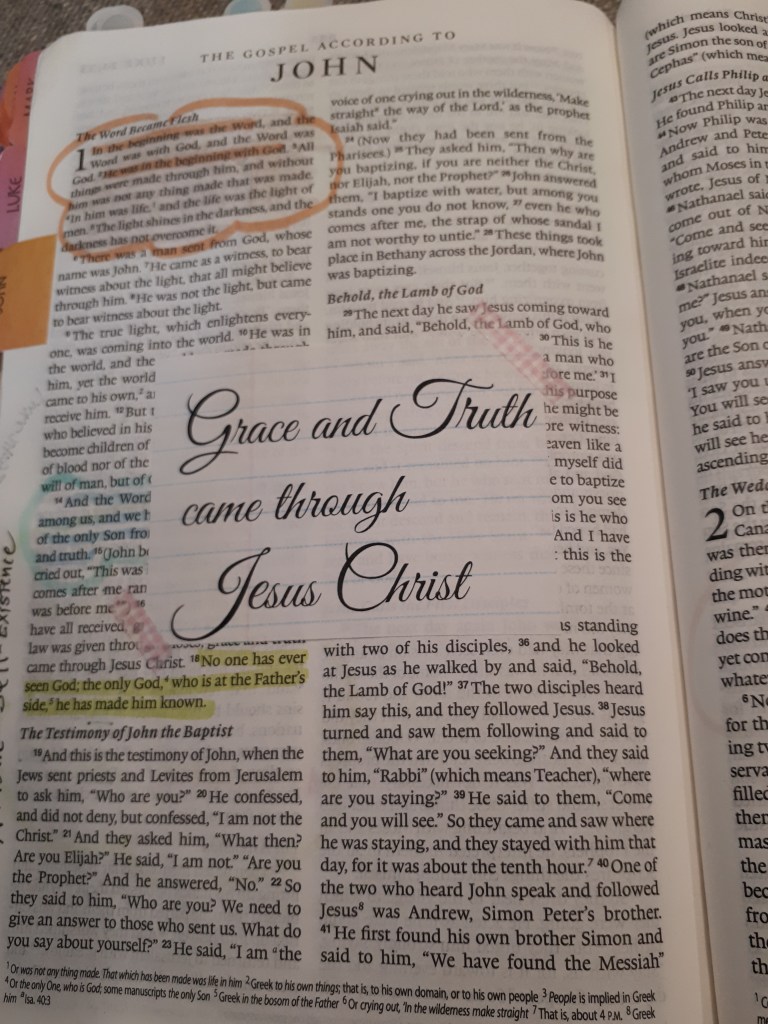 THE GOSPEL ACCORDING TO
JOHN
The Word Became Flesh
1 In the beginning was the Word, and the
Word was with God, and the Word was
God. ²He was in the beginning with God. ³All
things were made through him, and without
him was not any thing made that was made.
⁴In him was life,¹ and the life was the light of
men. ⁵The light shines in the darkness, and the
darkness has not overcome it.
⁶There was a man sent from God, whose
name was John. ⁷He came as a witness, to bear
witness about the light, that all might believe
through him. ⁸He was not the light, but came
to bear witness about the light.
⁹The true light, which enlightens every-
one, was coming into the world. ¹⁰He was in
the world, and the
him, yet the world
came to his own,²
receive him. ¹²But
who believed in his
become children of
of blood nor of the
will of man, but of
¹⁴And the Word
among us, and we
of the only Son
and truth. ¹⁵(John
cried out, "This was
comes after me ran
was before me
have all received,
law was given
came through Jesus Christ. ¹⁸No one has ever
seen God; the only God,⁴ who is at the Father's
side,⁵ he has made him known.
The Testimony of John the Baptist
¹⁹And this is the testimony of John, when the
Jews sent priests and Levites from Jerusalem
to ask him, "Who are you?" ²⁰He confessed,
and did not deny, but confessed, "I am not the
Christ." ²¹And they asked him, "What then?
Are you Elijah?" He said, "I am not." "Are you
the Prophet?" And he answered, "No." ²²So
they said to him, "Who are you? We need to
give an answer to those who sent us. What do
you say about yourself?" ²³He said, "I am the
Grace and Truth
came through
Jesus Christ
voice of one crying out in the wilderness, 'Make
straight⁶ the way of the Lord,' as the prophet
Isaiah said."
²⁴(Now they had been sent from the
Pharisees.) ²⁵They asked him, "Then why are
you baptizing, if you are neither the Christ,
nor Elijah, nor the Prophet?" ²⁶John answered
them, "I baptize with water, but among you
stands one you do not know, ²⁷even he who
comes after me, the strap of whose sandal I
am not worthy to untie." ²⁸These things took
place in Bethany across the Jordan, where John
was baptizing.
Behold, the Lamb of God
²⁹The next day he saw Jesus coming toward
him, and said, "Behold, the Lamb of God, who
³⁰This is he
a man who
me.' ³¹I
purpose
he might be
witness:
like a
myself did
to baptize
you see
is he who
And I have
: this is the
standing
with two of his disciples, ³⁶and he looked
at Jesus as he walked by and said, "Behold,
the Lamb of God!" ³⁷The two disciples heard
him say this, and they followed Jesus. ³⁸Jesus
turned and saw them following and said to
them, "What are you seeking?" And they said
to him, "Rabbi" (which means Teacher), "where
are you staying?" ³⁹He said to them, "Come
and you will see." So they came and saw where
he was staying, and they stayed with him that
day, for it was about the tenth hour.⁷ ⁴⁰One of
the two who heard John speak and followed
Jesus⁸ was Andrew, Simon Peter's brother.
⁴¹He first found his own brother Simon and
said to him, "We have found the Messiah"
¹ Or was not any thing made. That which has been made was life in him ² Greek to his own things; that is, to his own domain, or to his own people ³ People is implied in Greek
⁴ Or the only One, who is God; some manuscripts the only Son ⁵ Greek in the bosom of the Father ⁶ Or crying out, 'In the wilderness make straight ⁷ That is, about 4 P.M. ⁸ Greek
him ᵃ Isa. 40:3
(which means Christ
Jesus. Jesus looked a
are Simon the son of
Cephas" (which mea
Jesus Calls Philip a
⁴³The next day Je
He found Philip an
⁴⁴Now Philip was
Andrew and Pete
and said to him
whom Moses in t
wrote, Jesus of
⁴⁶Nathanael sai
come out of N
"Come and see
ing toward hi
Israelite indee
⁴⁸Nathanael s
me?" Jesus an
you, when yo
you." ⁴⁹Nath
are the Son o
⁵⁰Jesus answ
'I saw you u
You will see
he said to
will see he
ascending
The Wedd
2 On th
Cana
was ther
ding wit
the mot
wine." ⁴
does th
yet com
whate
⁶No
for th
ing tw
serva
filled
them
mas
the
bec
fro
the
th
LUKE